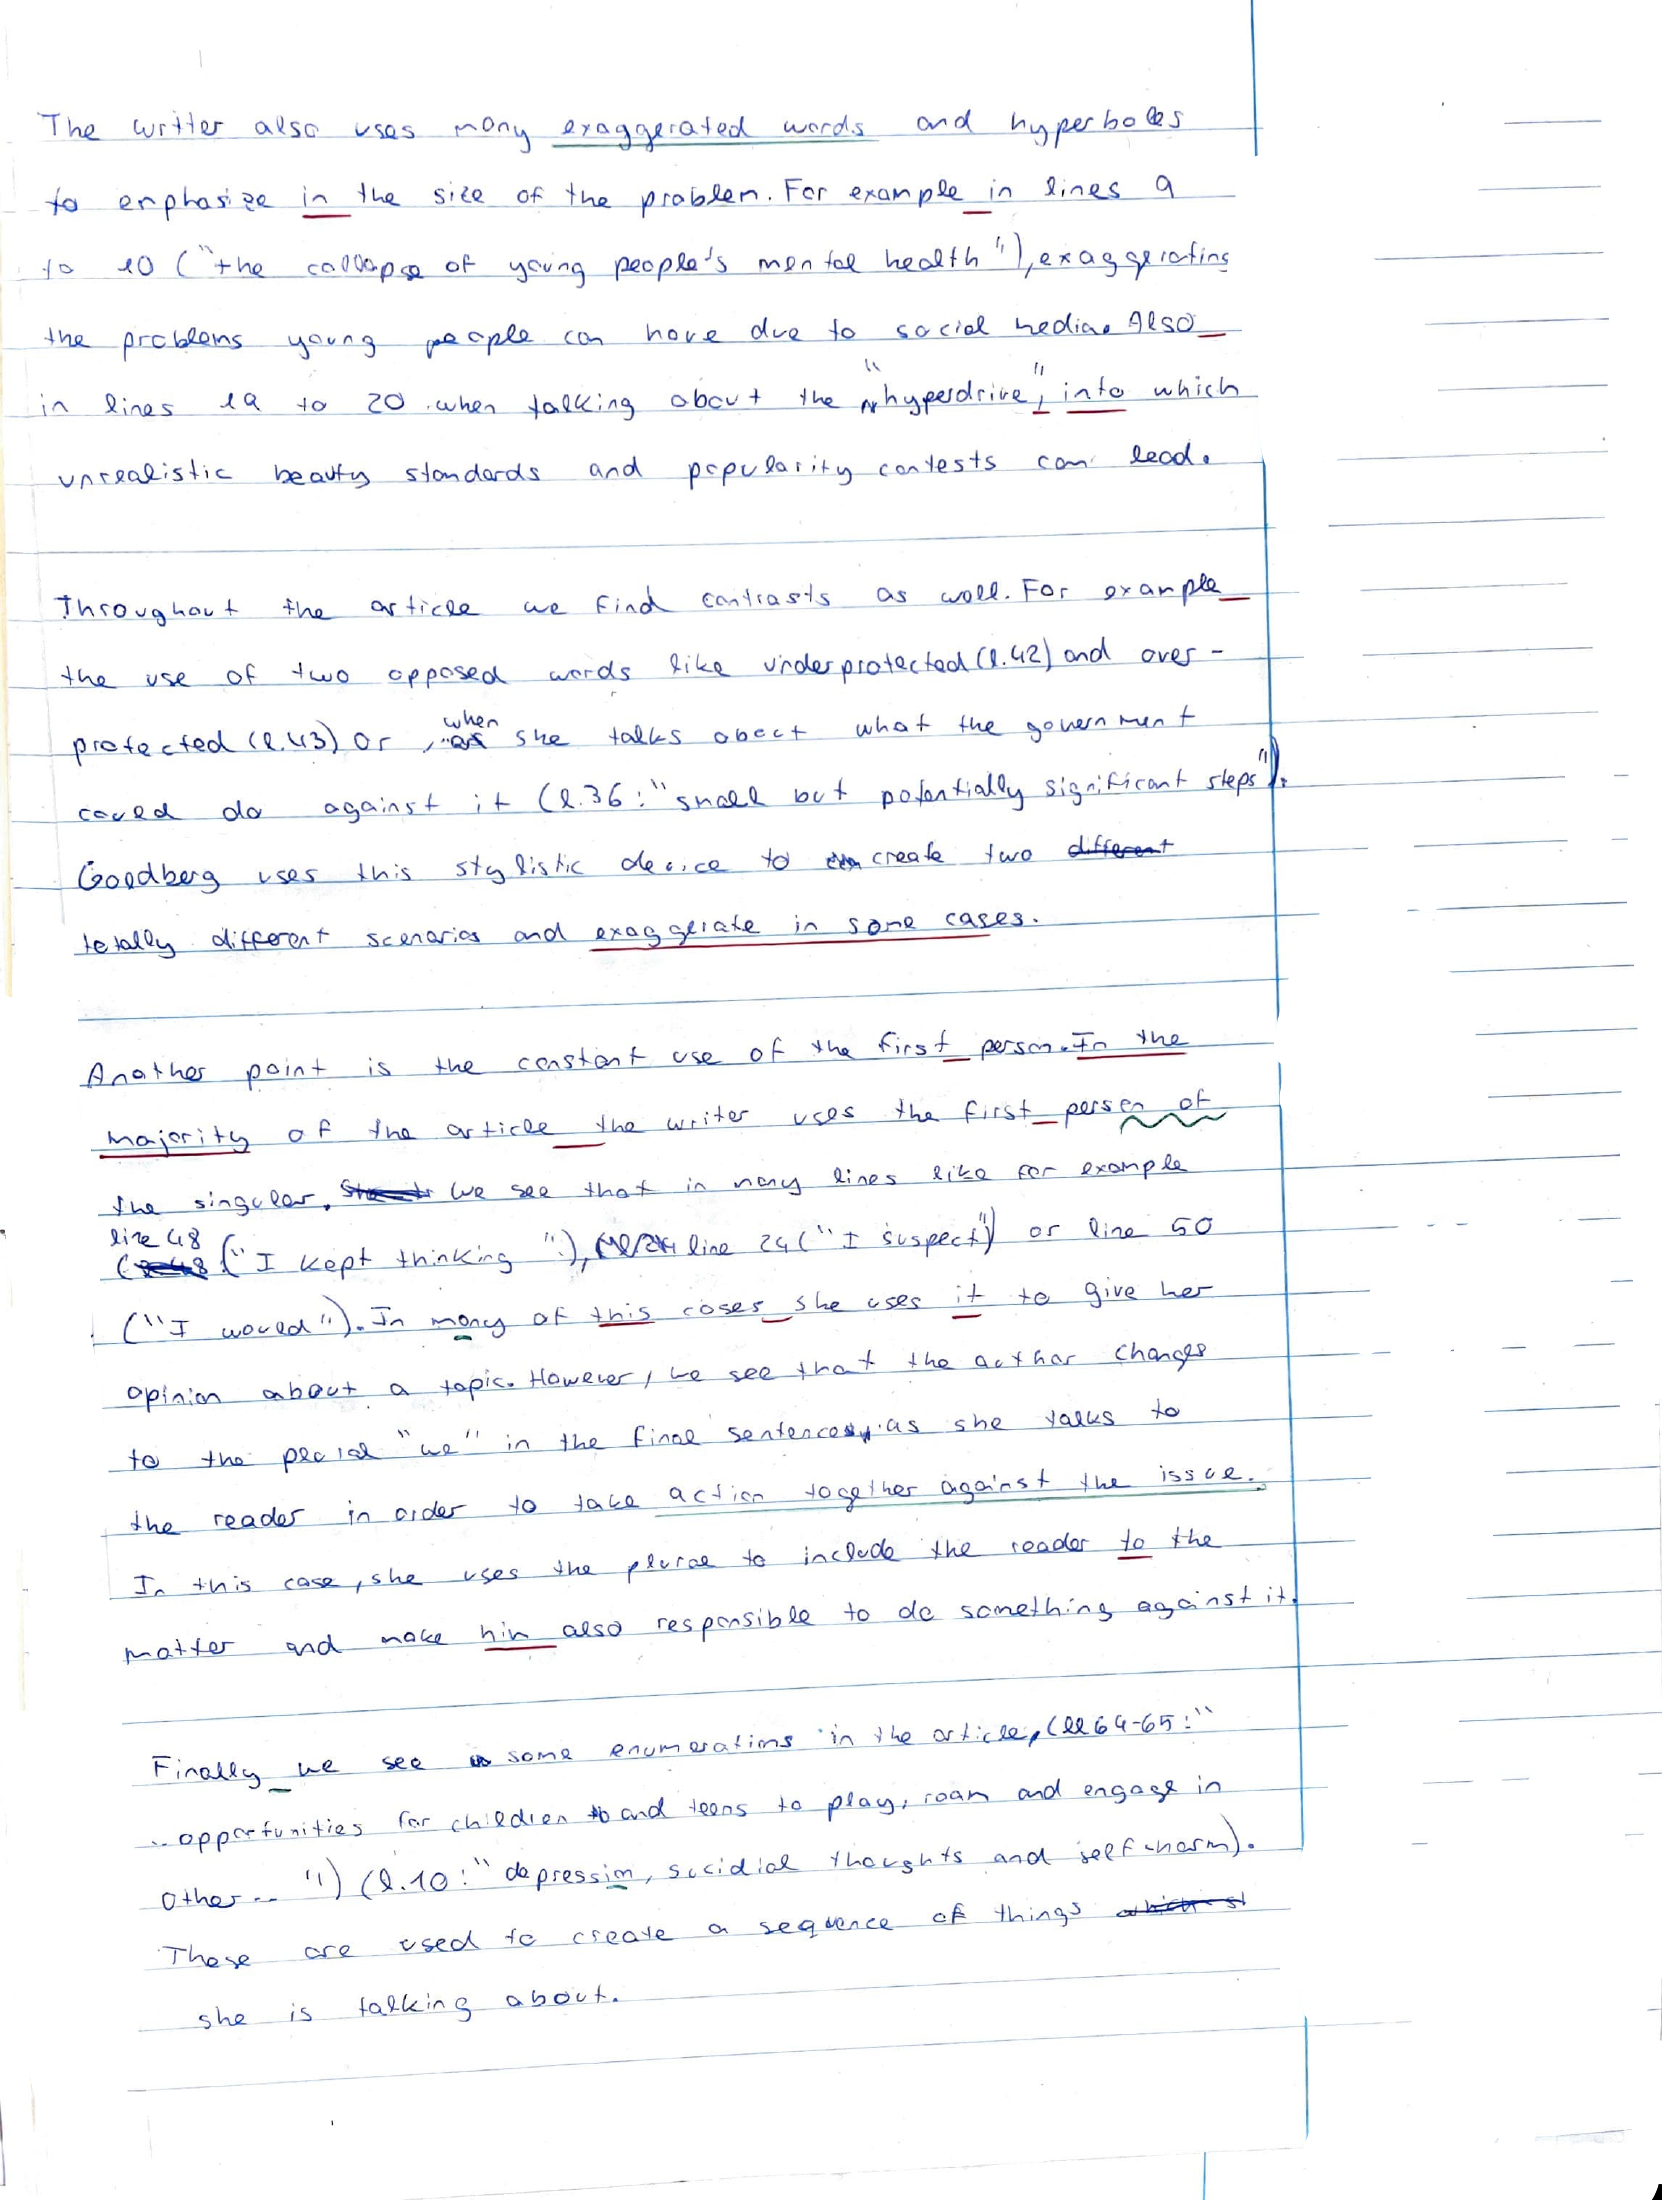 The writter also uses many exaggerated words and hyperboles
to emphasize in the size of the problem. For example in lines 9
to 10 ("the collapse of young people's mental health"), exaggerating
the problems young people can have due to social media. Also
in lines 19 to 20 when talking about the "hyperdrive", into which
unrealistic beauty standards and popularity contests can lead.
Throughout the article we find contrasts as well. For example
the use of two opposed words like underprotected (l.42) and over-
protected (l.43) or, when she talks about what the government
could do against it (l.36: "small but potentially significant steps").
Goldberg uses this stylistic device to create two different
totally different scenarios and exaggerate in some cases.
Another point is the constant use of the first person. In the
majority of the article the writer uses the first person of
the singular. We see that in many lines like for example
line 48 ("I kept thinking"), line 24 ("I suspect") or line 50
("I would"). In many of this cases she uses it to give her
opinion about a topic. However, we see that the author changes
to the plural "we" in the final sentences, as she talks to
the reader in order to take action together against the issue.
In this case, she uses the plural to include the reader to the
matter and make him also responsible to do something against it.
Finally we see some enumerations in the article, (ll 64-65: "
.. opportunities for children and teens to play, roam and engage in
other .. ") (l.10: "depression, suicidial thoughts and self-harm).
These are used to create a sequence of things
she is talking about.